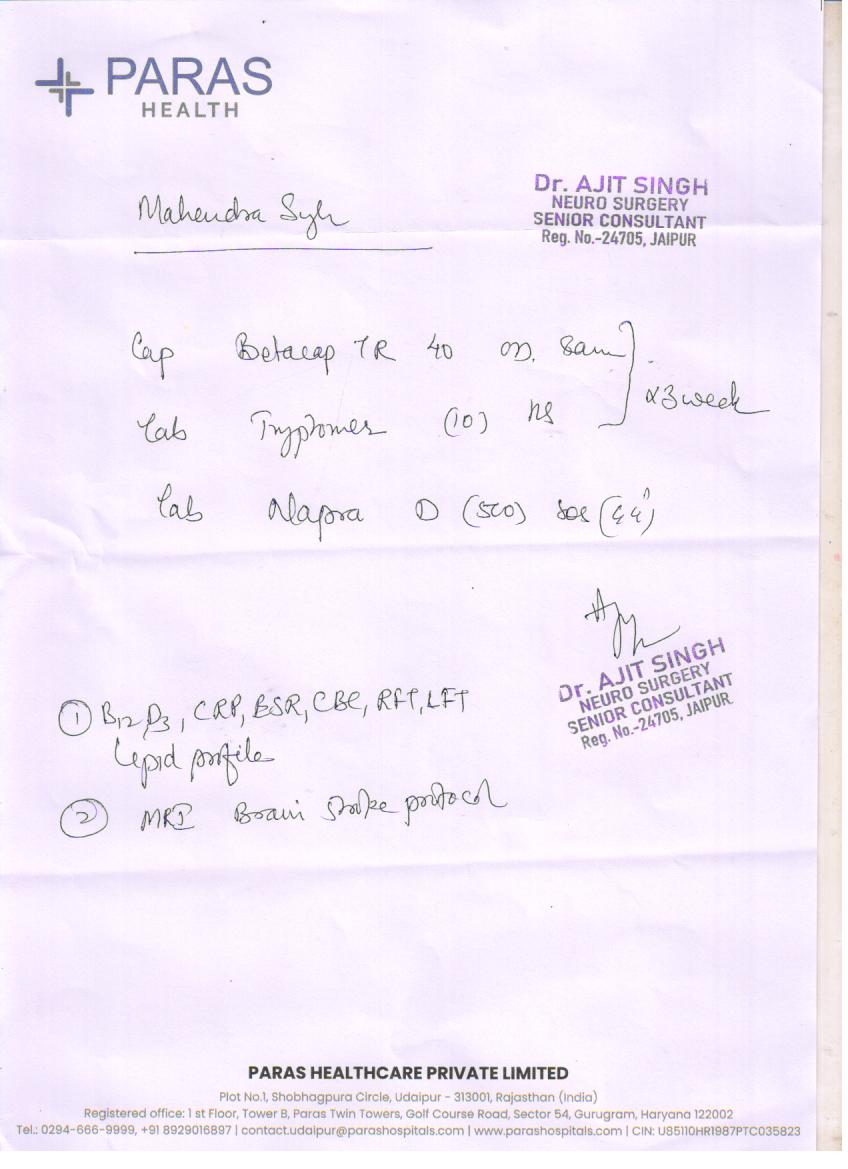 PARAS
HEALTH
Dr. AJIT SINGH
NEURO SURGERY
SENIOR CONSULTANT
Reg. No.-24705, JAIPUR
Mahendra Sgh
Cap Betacap TR 40 OD. 8am
Tab Tryptomer (10) HS
x3 week
Tab Napra D (500) SOS
Dr. AJIT SINGH
NEURO SURGERY
SENIOR CONSULTANT
Reg. No.-24705, JAIPUR
① B12, D3, CRP, ESR, CBC, RFT, LFT
Lipid profile
② MRI Brain stroke protocol
PARAS HEALTHCARE PRIVATE LIMITED
Plot No.1, Shobhagpura Circle, Udaipur - 313001, Rajasthan (India)
Registered office: 1 st Floor, Tower B, Paras Twin Towers, Golf Course Road, Sector 54, Gurugram, Haryana 122002
Tel.: 0294-666-9999, +91 8929016897 | contact.udaipur@parashospitals.com | www.parashospitals.com | CIN: U85110HR1987PTC035823